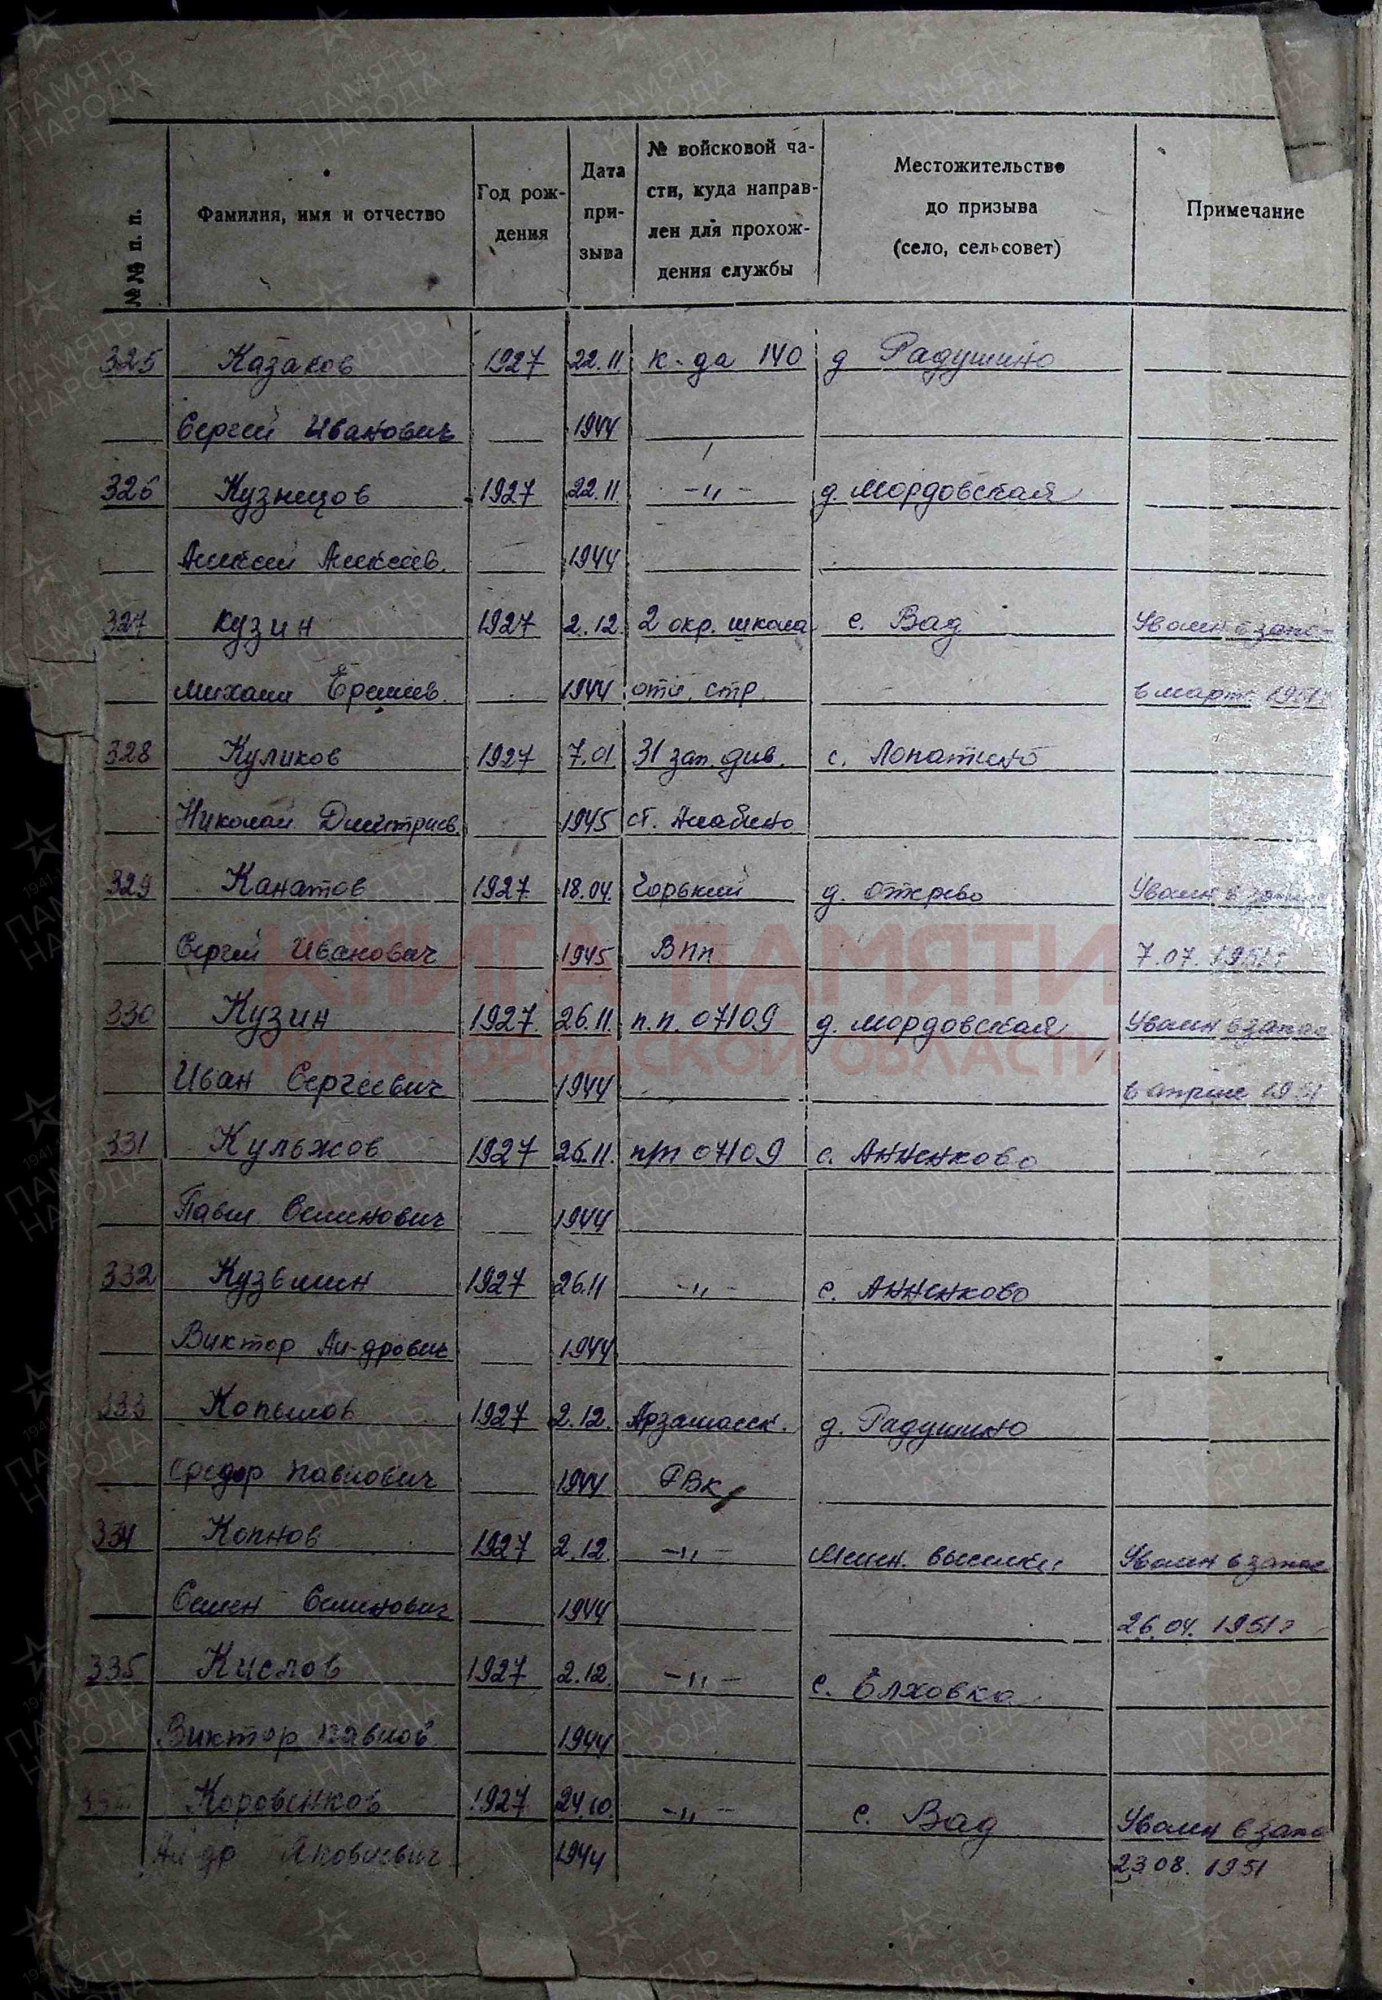 №№ п. п. Фамилия, имя и отчество Год рож- Дата № войсковой ча- Местожительство Примечание
дения при- сти, куда направ- до призыва
зыва лен для прохож- (село, сельсовет)
дения службы
325 Казаков 1927 22.11 к-да 140 д Радушино
Сергей Иванович 1944
326 Кузнецов 1927 22.11 -„- д. Мордовская
Алексей Алексеев. 1944
327 Кузин 1927 2.12 2 окр. школа с. Вад Уволен в запас
Михаил Ермиев. 1944 отл. стр. в марте 1951
328 Куликов 1927 7.01 31 зап. див. с. Лопатино
Николай Дмитриев. 1945 ст. Алабино
329 Канатов 1927 18.04. Горький д. Отярево Уволен в запас
Сергей Иванович 1945 ВПП 7.07. 1951г
330 Кузин 1927 26.11 п.п. 07109 д. Мордовская Уволен в запас
Иван Сергеевич 1944 в апреле 1951
331 Кульжов 1927 26.11. п/п 07109 с. Анненково
Павел Семенович 1944
332 Кузьмин 1927 26.11 -„- с. Анненково
Виктор Ал-дрович 1944
333 Копылов 1927 2.12. Арзамасск. д. Радушино
Федор Павлович 1944 РВК
334 Копнов 1927 2.12 -„- Мелин. выселки Уволен в запас
Семен Семенович 1944 26.04. 1951г
335 Кислов 1927 2.12. -„- с. Елховка
Виктор Павлов. 1944
Коровенков 1927 24.10. -„- с. Вад Уволен в запа
Ал-др Яковлевич 1944 23.08. 1951
КНИГА ПАМЯТИ
НИЖЕГОРОДСКОЙ ОБЛАСТИ
ПАМЯТЬ НАРОДА